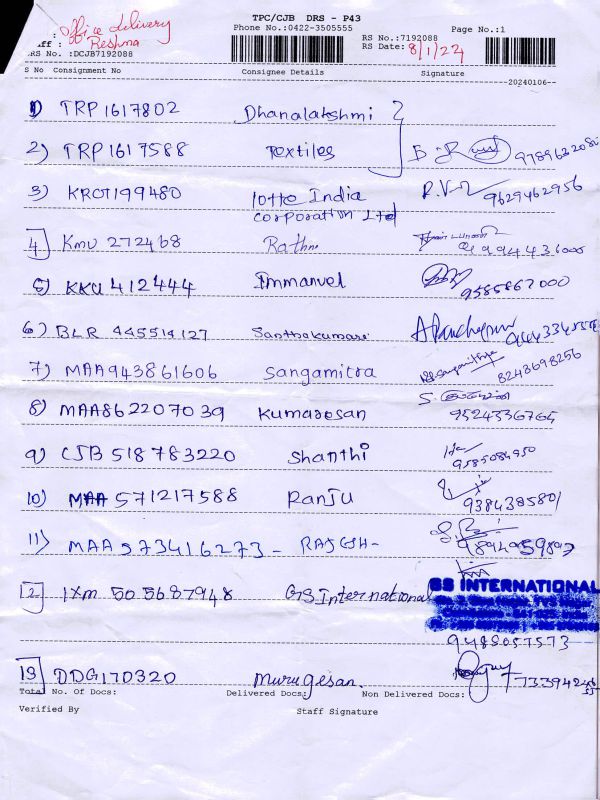 TPC/CJB DRS - P43
Office delivery
Reshma
Phone No.:0422-3505555
RS No.:7192088
RS Date: 8/1/24
Page No.:1
RS No. :DCJB7192088
S No Consignment No Consignee Details Signature
20240106
1) TRP 1617802 Dhanalakshmi
2) TRP 1617588 Textiles
3) KROT199480 lotto India 9629462956
Corporation Ltd
4 KMU 272468 Rathna
5) KKU 412444 Immanuel 9585867000
6) BLR 445514127 Santhakumari
7) MAA943861606 Sangamitra 8243698256
8) MAA862207039 Kumaresan 9524336765
9) CJB 518783220 Shanthi 9585084950
10) MAA 571217588 Ranju 9384385801
11) MAA 573416273 - RAJESH -
12 IXM 505687948 GS International
GS INTERNATIONAL
9488057573
13 DDG170320 Murugesan
Total No. Of Docs: Delivered Docs: Non Delivered Docs:
Verified By Staff Signature